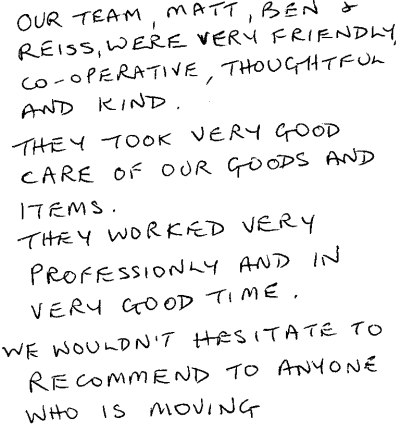 OUR TEAM, MATT, BEN &
REISS, WERE VERY FRIENDLY,
CO-OPERATIVE, THOUGHTFUL
AND KIND.
THEY TOOK VERY GOOD
CARE OF OUR GOODS AND
ITEMS.
THEY WORKED VERY
PROFESSIONLY AND IN
VERY GOOD TIME.
WE WOULDN'T HESITATE TO
RECOMMEND TO ANYONE
WHO IS MOVING